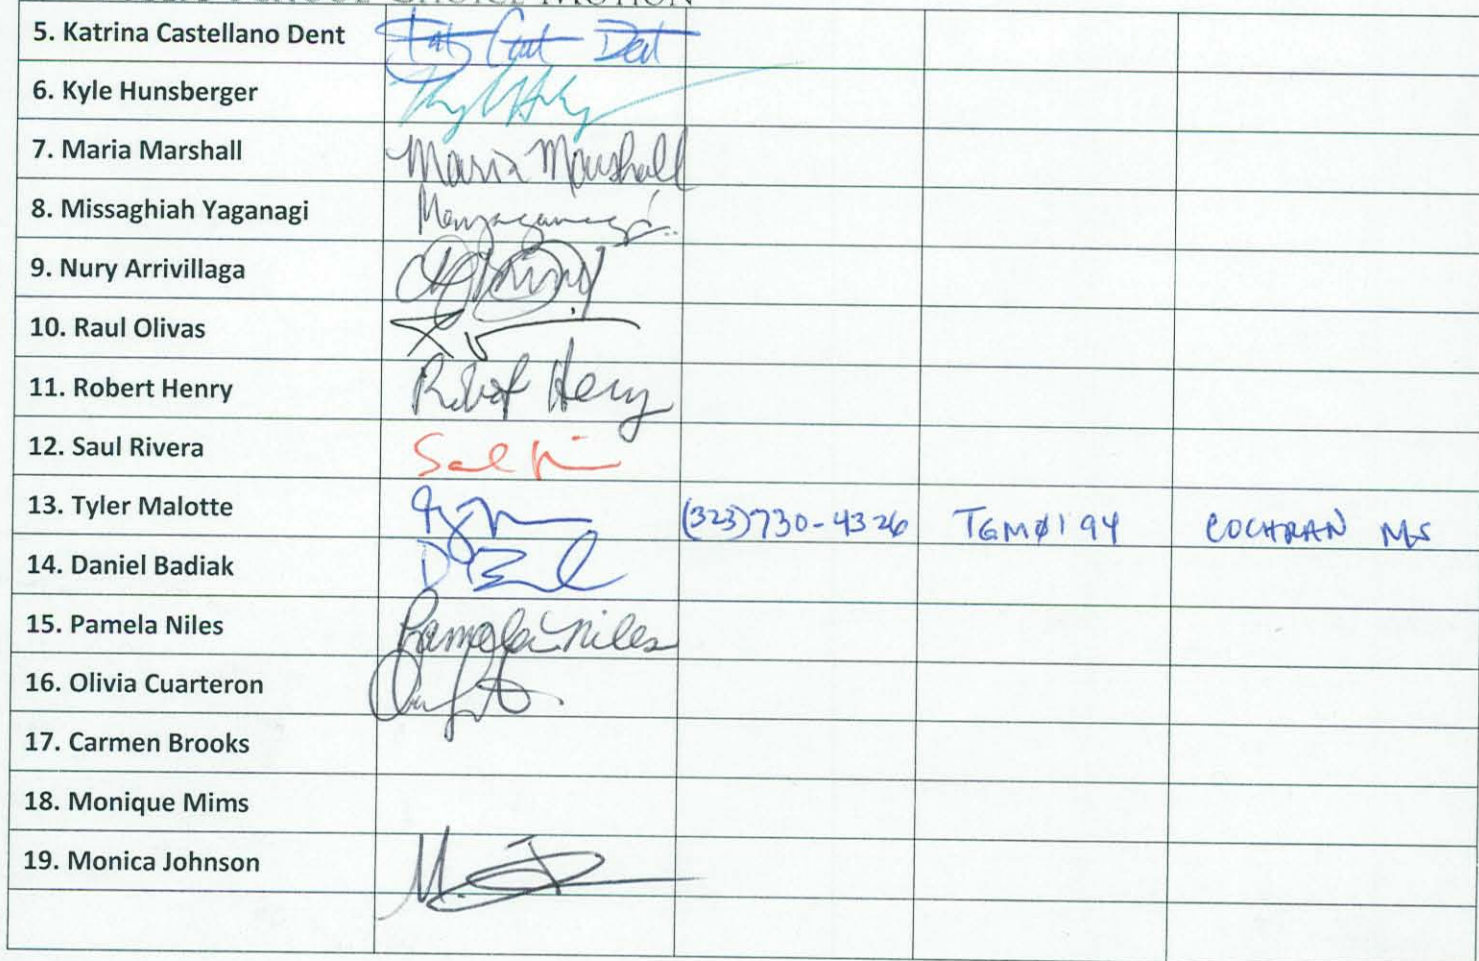 SCHOOL CHOICE MOTION
5. Katrina Castellano Dent Dent
6. Kyle Hunsberger
7. Maria Marshall Maria Marshall
8. Missaghiah Yaganagi
9. Nury Arrivillaga
10. Raul Olivas
11. Robert Henry Robert Henry
12. Saul Rivera
13. Tyler Malotte (323)730-4326 TGMØ194 COCHRAN MS
14. Daniel Badiak
15. Pamela Niles Pamela Niles
16. Olivia Cuarteron
17. Carmen Brooks
18. Monique Mims
19. Monica Johnson